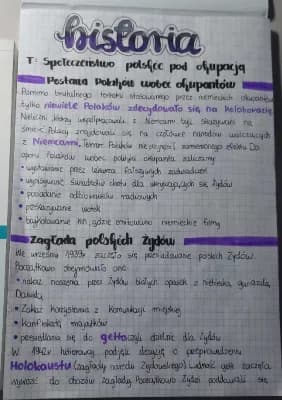 historia
T: Społeczeństwo polskie pod okupacją
Postawa Polaków wobec okupantów
Pomimo brutalnego terroru stosowanego przez niemieckich okupantów
tylko niewiele Polaków zdecydowało się na kolaborację
Nieliczni którzy współpracowali z Niemcami byli skazywani na
śmierć. Polacy znajdowali się na czołówce narodów walczących
z Niemcami, terror Polaków nie przyniósł zamierzonego efektu Do
oporu Polaków wobec polityki okupanta zaliczamy
• wystawianie przez lekarza fałszywych zaświadczeń
• wypisywanie świadectw chrztu dla ukrywających się Żydów
• posiadanie odbiorników radiowych
• przekazywanie ulotek
• bojkotowanie kin, gdzie emitowano niemieckie filmy
Zagłada polskich Żydów
We wrześniu 1939r zaczęło się prześladowanie polskich Żydów.
Początkowo obejmowało ono:
• nakaz noszenia przez Żydów białych opasek z niebieską gwiazdą
Dawida
• Zakaz korzystania z komunikacji miejskiej
• konfiskatę majątków
• przesiedlano się do getta czyli dzielnic dla Żydów
W 1942r hitlerowcy podjęli decyzję o przeprowadzeniu
Holokaustu (zagłady narodu Żydowskiego) Ludność gett zaczęła
wywozić do obozów zagłady Początkowo Żydzi poddawali się